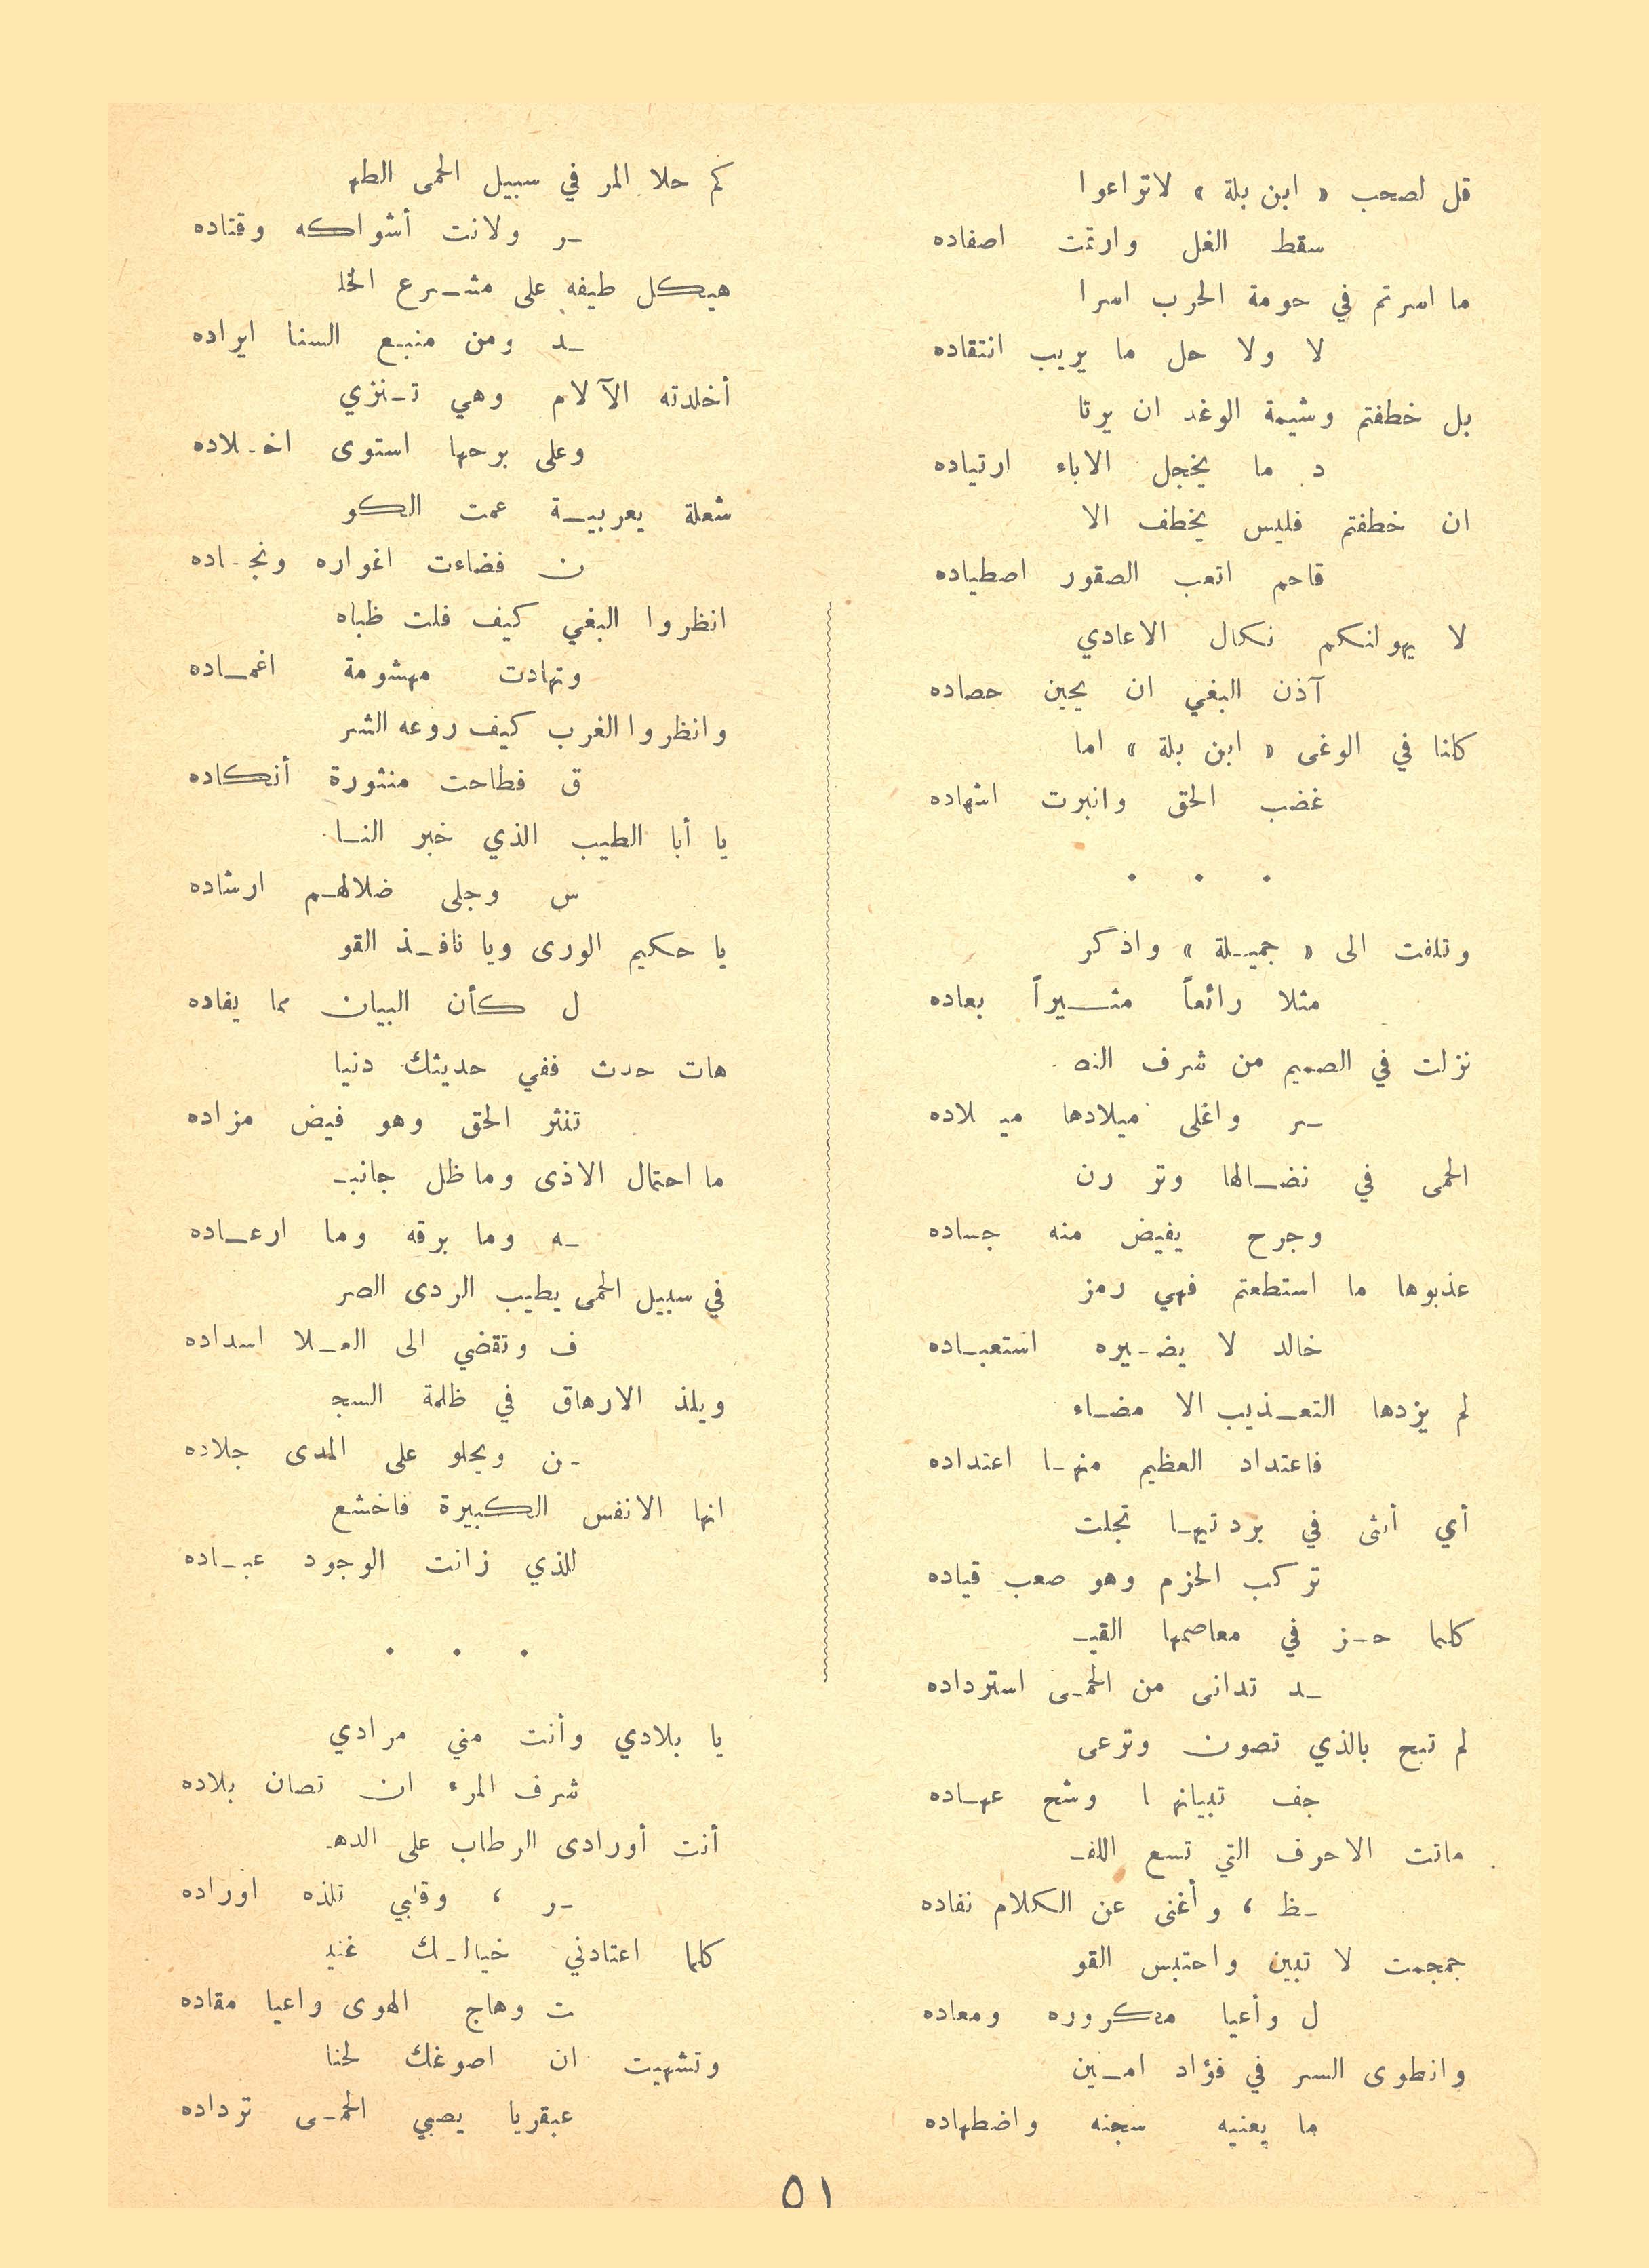 قل لصحب « ابن بلة » لاتراعوا
سقط الغل وارتمت اصفاده
ما اسرتم في حومة الحرب اسرا
لا ولا حل ما يريب انتقاده
بل خطفتم وشيمة الوغد ان يرتا
د ما يخجل الاباء ارتياده
ان خطفتم فليس يخطف الا
قاحم اتعب الصقور اصطياده
لا يهولنكم نكال الاعادي
آذن البغي ان يحين حصاده
كلنا في الوغى « ابن بلة » اما
غضب الحق وانبرت اشهاده
• • •
وتلفت الى « جميـلة » واذكر
مثلا رائعاً مثـيراً بعاده
نزلت في الصميم من شرف النص
ـر واغلى ميلادها ميـلاده
الحمى في نضـالها وتر رن
وجرح يفيض منه جساده
عذبوها ما استطعتم فهي رمز
خالد لا يضـيره استعبـاده
لم يزدها التعـذيب الا مضـاء
فاعتداد العظيم منهـا اعتداده
أي أنثى في بردتيهـا تجلت
تركب الحزم وهو صعب قياده
كلما حـز في معاصمها القيـ
ـد تدانى من الحمـى استرداده
لم تبح بالذي تصون وترعى
جف تبيانها وشح عهـاده
ماتت الاحرف التي تسع اللفـ
ـظ ، وأغنى عن الكلام نفاده
جمجمت لا تبين واحتبس القو
ل وأعيا مكروره ومعاده
وانطوى السر في فؤاد امـين
ما يعنيه سجنه واضطهاده
كم حلا المر في سبيل الحمى الطهـ
ـر ولانت أشواكه وقتاده
هيكل طيفه على مشـرع الخلـ
ـد ومن منبـع السنا ايراده
أخلدته الآلام وهي تـنزي
وعلى برحها استوى اخـلاده
شعلة يعربيـة عمت الكو
ن فضاءت اغواره ونجـاده
انظروا البغي كيف فلت ظباه
وتهادت مهشومة اغمـاده
وانظروا الغرب كيف روعه الشر
ق فطاحت منثورة أنكاده
يا أبا الطيب الذي خبر النـا
س وجلى ضلالهـم ارشاده
يا حكيم الورى ويا نافـذ القو
ل كأن البيان مما يفاده
هات حدث ففي حديثك دنيا
تنثر الحق وهو فيض مزاده
ما احتمال الاذى وما ظل جانبـ
ـه وما برقه وما ارعـاده
في سبيل الحمى يطيب الردى الصر
ف وتقضي الى العـلا اسداده
ويلذ الارهاق في ظلمة السجـ
ـن ويحلو على المدى جلاده
انها الانفس الكبيرة فاخشع
للذي زانت الوجود عبـاده
• • •
يا بلادي وأنت مني مرادي
شرف المرء ان تصان بلاده
أنت أورادى الرطاب على الدهـ
ـر ، وقلبي تلذه اوراده
كلما اعتادني خيالـك غنيـ
ت وهاج الهوى واعيا مقاده
وتشهيت ان اصوغك لحنا
عبقريا يصبي الحمـى ترداده
٥١